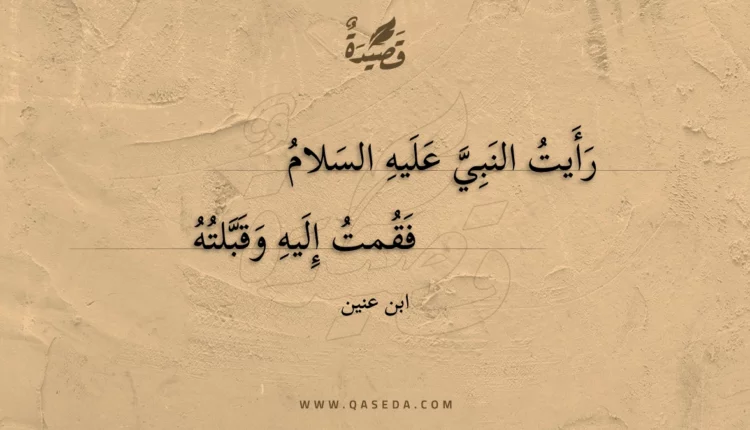 قَصِيدَةٌ
رَأَيتُ النَبِيَّ عَلَيهِ السَلامُ
فَقُمتُ إِلَيهِ وَقَبَّلتُهُ
ابن عنين
WWW.QASEDA.COM